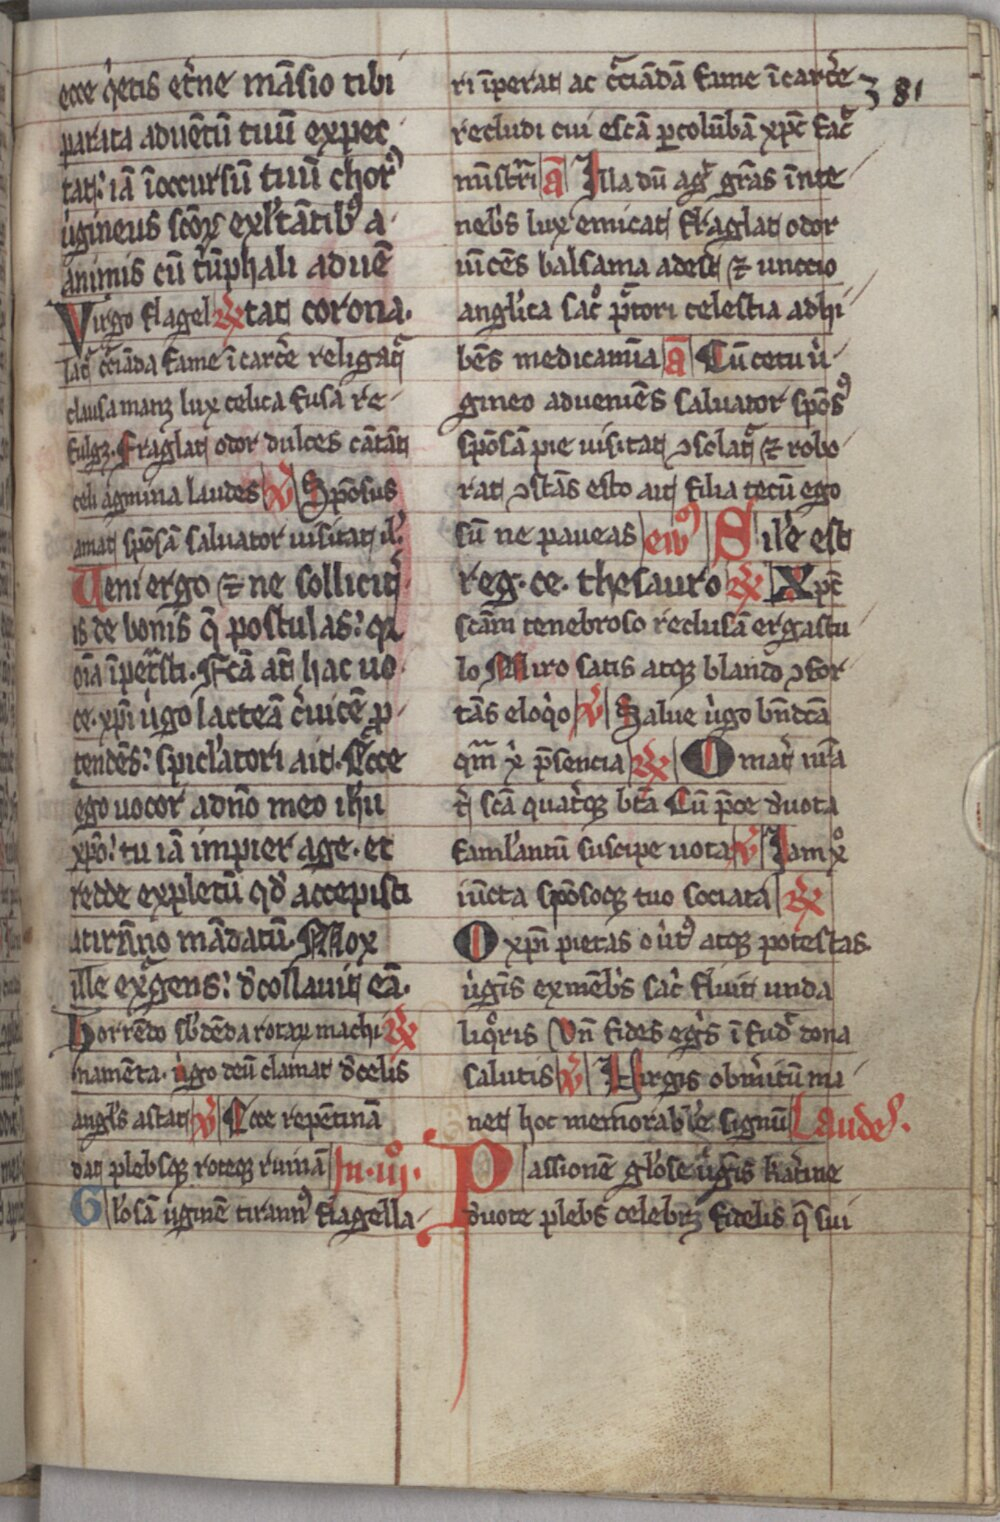 ecce q̇etis et̉ne mãsio tibi
parata aduẽtũ tuũ expec
tat; iã ĩoccursũ tuũ chor⁹
ůgineus scõꝝ exl̉tãtib⁹ a
animis cũ t̉ũphali aduẽ
Virgo flagell ℟ tat corona.
laťˀ ẜciãda fame ĩ carc̉e religaťˀ
clausa manꝫ lux celica fusa re
fulgꝫ. Fraglat odor dulces cãtãt
celi agmina laudes ℣ Sponsus
amat spõsã saluator uisitat il̉.
Veni ergo ⁊ ne sollicit̉
is de bonis q̃ postulas; qꝛ
oĩa ĩpet̉sti. Fc̃ã aũ hac uo
ce. xp̃i ůgo lacteã c̉uicẽ p̱
tendẽs; spicl̉atori ait. Ecce
ego uocor ad dñm meo ihũ
xp̃o; tu iã impiger age. et
redde expletũ qd̉ accepisti
a tirãno mãdatũ. Mox
ille exᵃgens; d̉collauit eã.
Horrẽdo sb̉dẽda rotaꝝ machi ℟
namẽta. ůgo deũ clamat d̉ celis
angl̉s astat ℣ Ecce repẽtinã
dat plebsqꝫ roteqꝫ ruinã In. iijº.
Gl̉osã ůginẽ tirann⁹ flagella
ri ĩperat ac ẜciãdã fame ĩ carc̉e
recludi cui escã p̱ colũbã xp̃c fac̉
mĩst̉ri a Illa dũ ag̉ gr̃as ĩ te
neb̉s lux emicat fraglat odor
iũcẽs balsama adest ⁊ unctio
angl̉ica sac̉ p̃tori celestia adhi
bẽs medicamĩa a Cũ cetu ů
gineo adueniẽs saluator spõs⁹
spõsã pie uisitat ꝯsolaťˀ ⁊ robo
rat ꝯstãs esto ait filia tecũ ego
sũ ne paueas eiv⁹ Sil̉e est
reg. ce. thesauro ℟ Xp̃c
scãm tenebroso reclusã ergastu
lo Miro satis atqꝫ blando ꝯfor
tãs eloq̇o ℣ Salue ůgo bñdcã
qm̃ xˢ p̃sencia ℟ O mat̉ nr̃a
t̉ scã quat̉qꝫ bt̃a Cũ p̃ce d̉uota
faml̉antũ suscipe uota ℣ Iam xº
iũcta spõsoqꝫ tuo sociata ℟
O xp̃i pietas o ůt⁹ atqꝫ potestas.
ůgis ex mẽb̉s sac̉ fluit unda
liqºris Vñ fides eg̉s ĩ fud̉ dona
salutis ℣ Virgis ob m̉itũ ma
net hoc memorabl̉e signũ Laudes.
Passionẽ gl̉ose ůgis kat̉ine
d̉uote plebs celebrꝫ fidelis q̃ sui
381